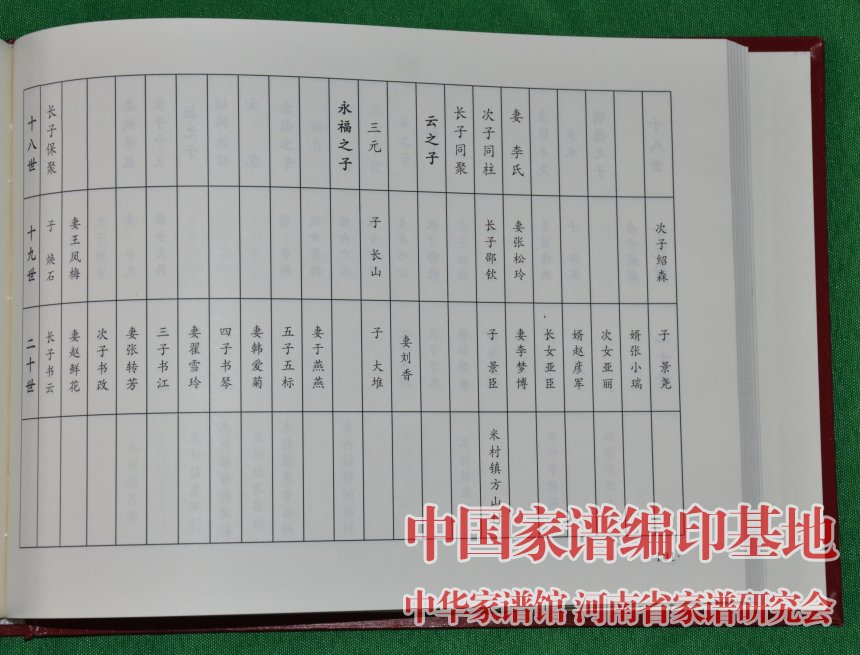 十八世
长子保聚
永福之子
三元
云之子
长子同聚
次子同柱
妻 李氏
十九世
子 焕石
妻王凤梅
子 长山
长子邵钦
妻张松玲
次子绍森
二十世
长子书云
妻赵鲜花
次子书改
妻张转芳
三子书江
妻翟雪玲
四子书琴
妻韩爱菊
五子五标
妻于燕燕
子 大堆
妻刘香
子 景臣
妻李梦博
长女亚臣
婿赵彦军
次女亚丽
婿张小瑞
子 景尧
米村镇方山
中国家谱编印基地
中华家谱馆 河南省家谱研究会